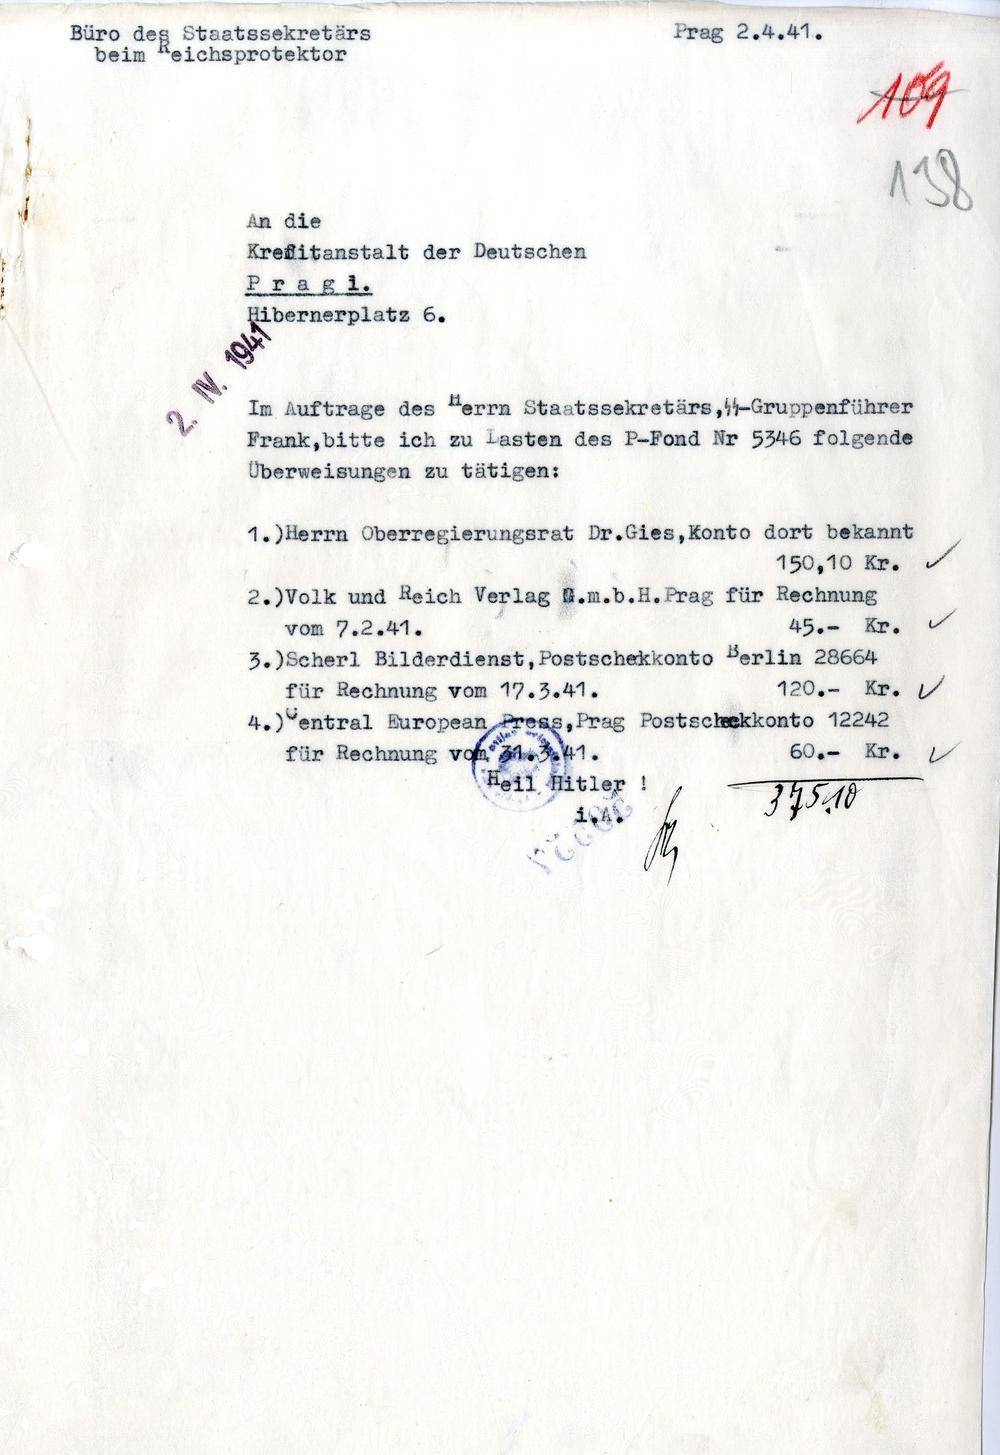 Büro des Staatssekretärs
beim Reichsprotektor
Prag 2.4.41.
109
138
An die
Kreditanstalt der Deutschen
P r a g 1.
Hibernerplatz 6.
2. IV. 1941
Im Auftrage des Herrn Staatssekretärs,SS-Gruppenführer
Frank,bitte ich zu Lasten des P-Fond Nr 5346 folgende
Überweisungen zu tätigen:
1.)Herrn Oberregierungsrat Dr.Gies,Konto dort bekannt
150,10 Kr.
2.)Volk und Reich Verlag G.m.b.H.Prag für Rechnung
vom 7.2.41. 45.- Kr.
3.)Scherl Bilderdienst,Postschekkonto Berlin 28664
für Rechnung vom 17.3.41. 120.- Kr.
4.)Central European Press,Prag Postscheckkonto 12242
für Rechnung vom 31.3.41. 60.- Kr.
Heil Hitler !
375,10
i.A.